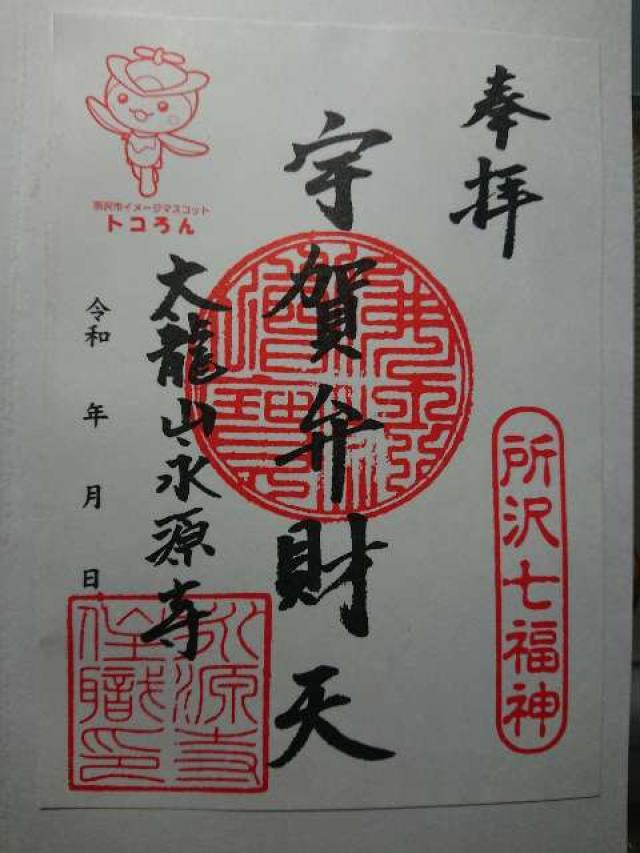 奉拝
所沢七福神
宇賀弁財天
太龍山永源寺
令和 年 月 日
所沢市イメージマスコット
トコろん
永源寺
住職印
佛法僧寶